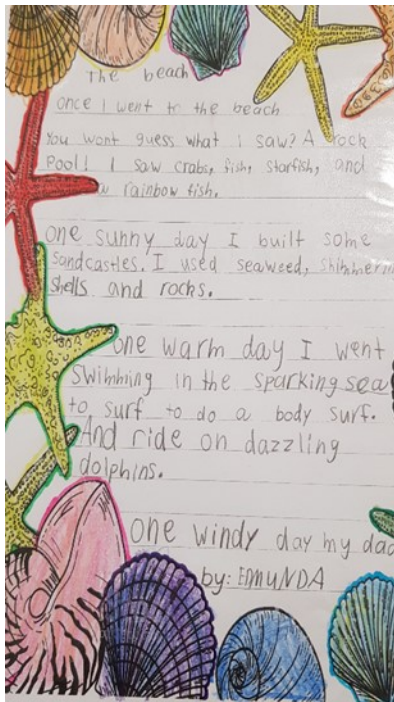 The beach
once I went to the beach
You wont guess what I saw? A rock
Pool! I saw crabs, fish, starfish, and
a rainbow fish.
one sunny day I built some
sandcastles. I used seaweed, shimmerin
shells and rocks.
one warm day I went
Swimming in the sparking sea
to surf to do a body surf.
And ride on dazzling
dolphins.
one windy day my dad
by: EMUNDA